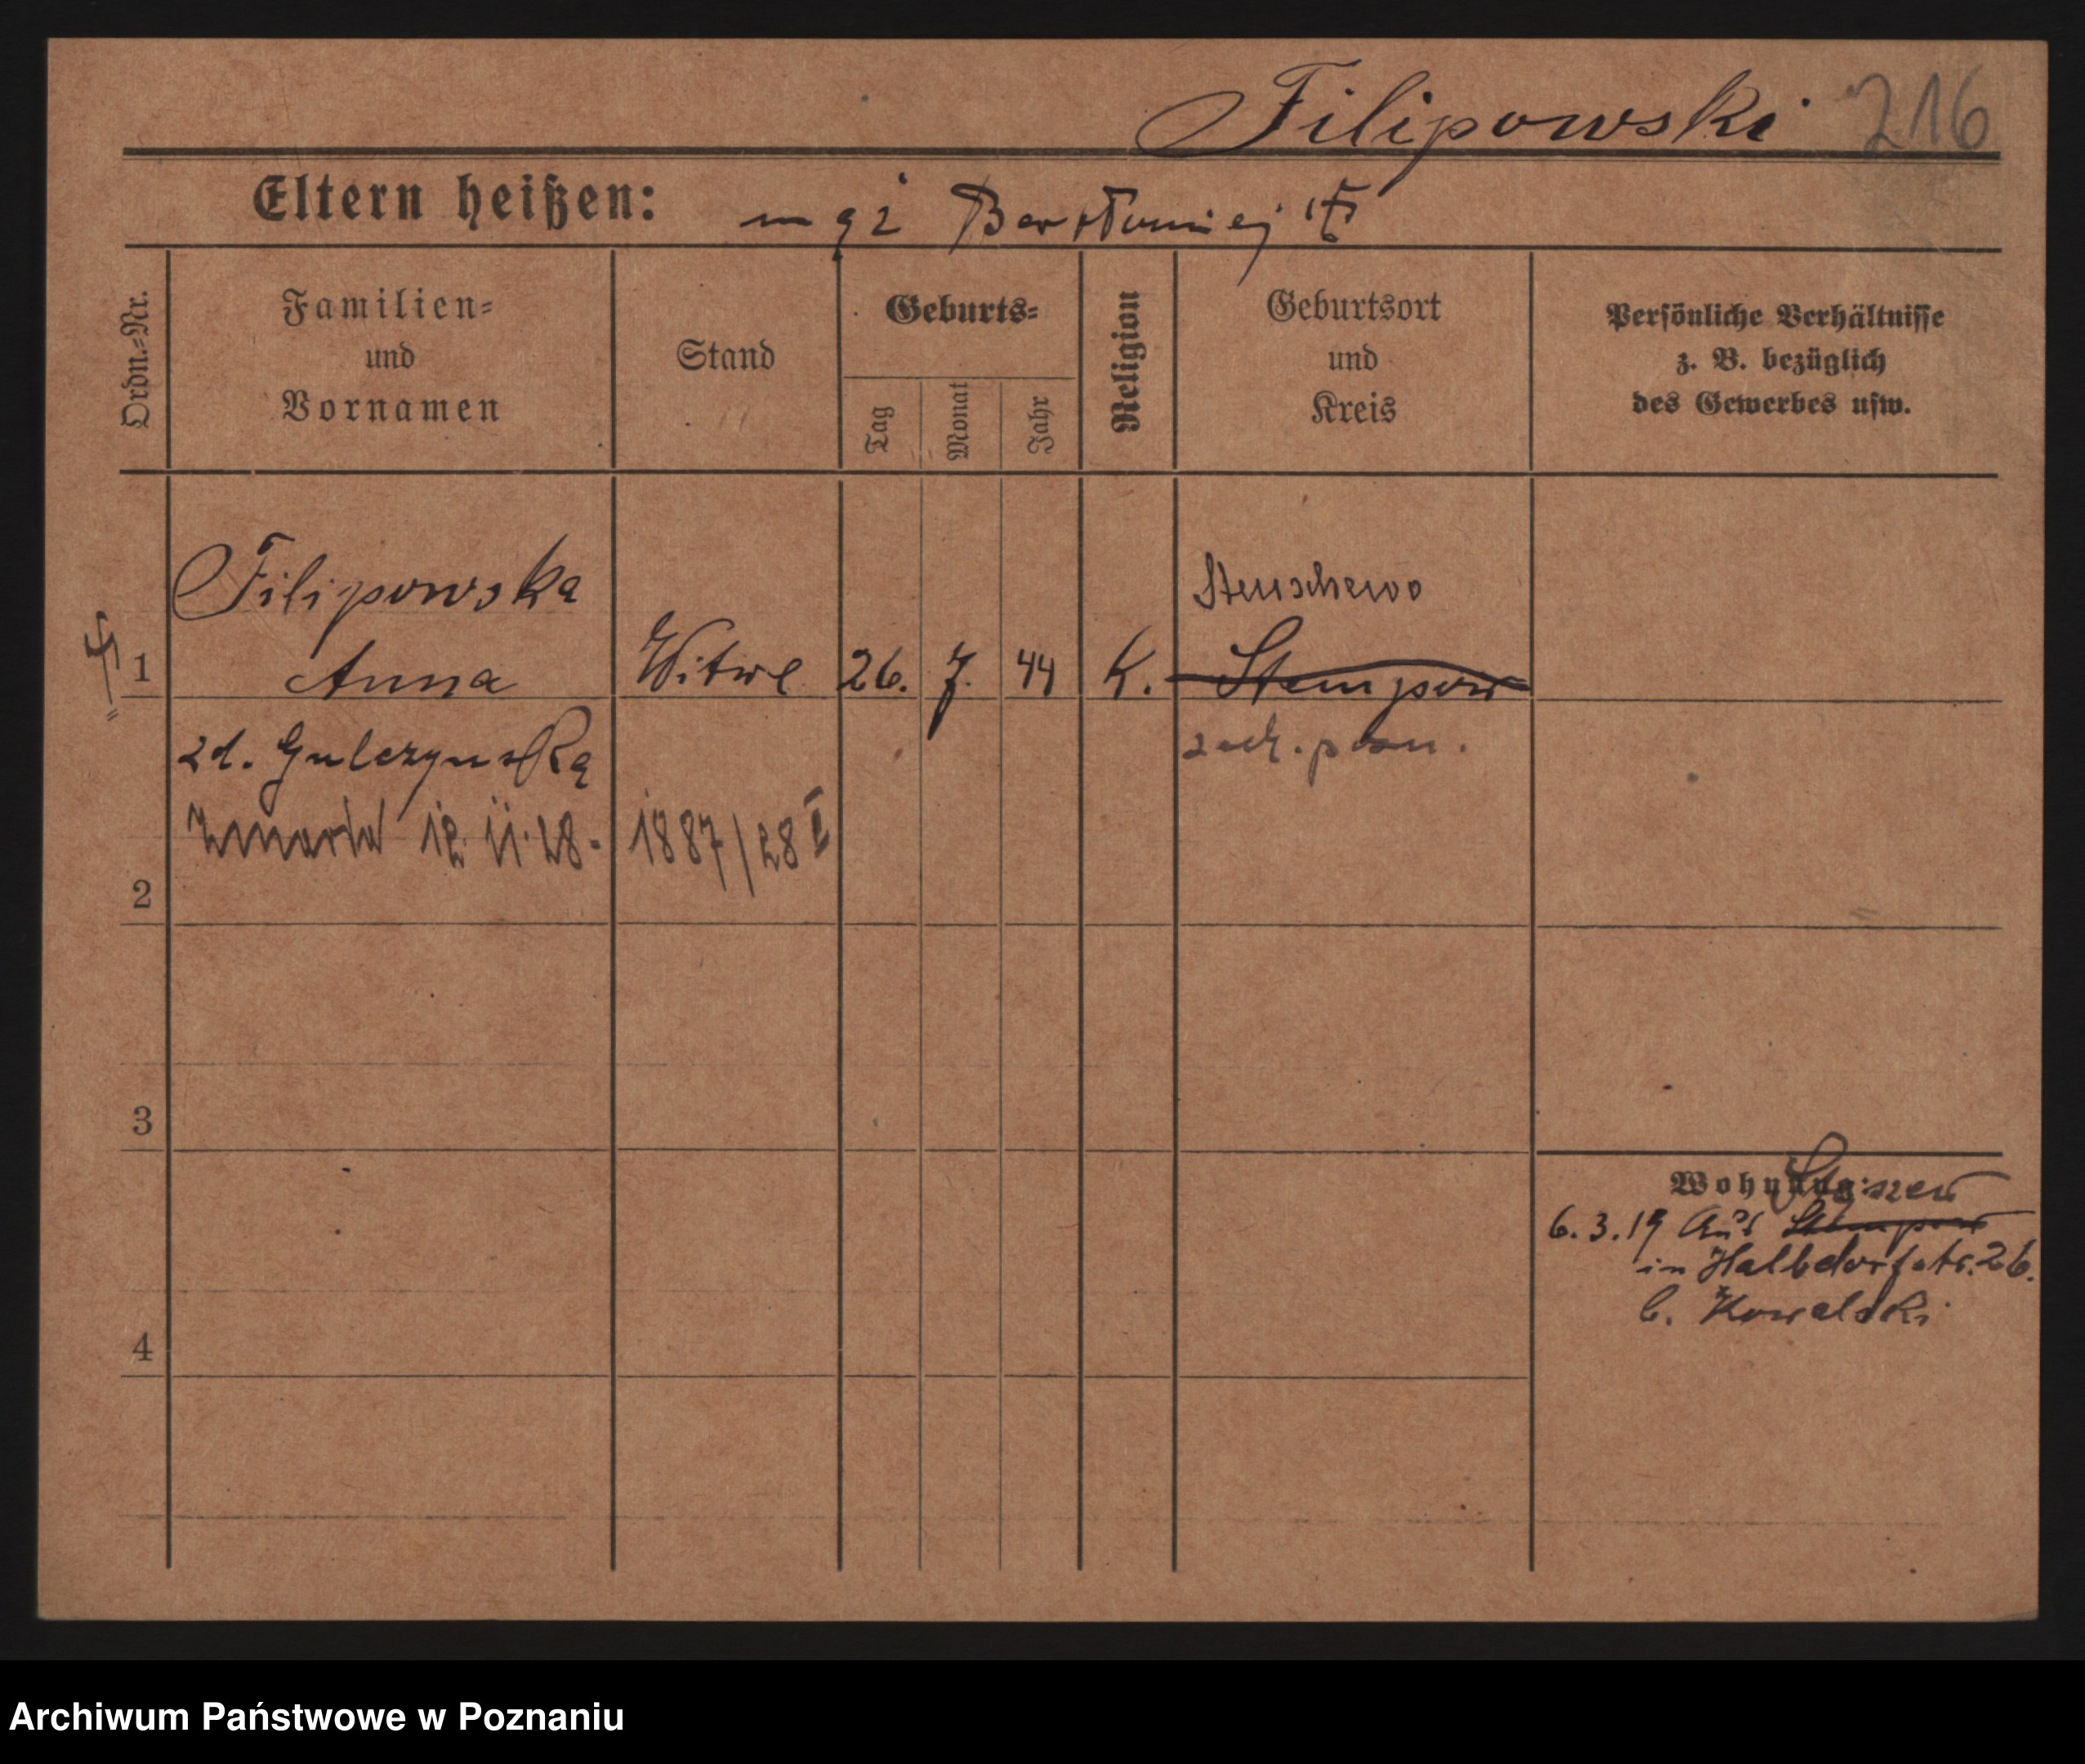 Filipowski 216
Eltern heißen: mąż Bartłomiej
Ordn.=Nr.
Familien=
und
Vornamen
Stand
Geburts=
Tag
Monat
Jahr
Religion
Geburtsort
und
Kreis
Persönliche Verhältnisse
z. B. bezüglich
des Gewerbes usw.
Filipowska
Stenschewo
1 Anna Witwe 26. 7. 44 K. Stempow
zd. Gulczyńska
zach. pozn.
Zmarła 12. 11. 28. 1887/28 I
2
3
Wohnung:
Stęszew
6.3.19 aus Stempow
in Halbdorfstr. 26.
b. Kowalski
4
Archiwum Państwowe w Poznaniu